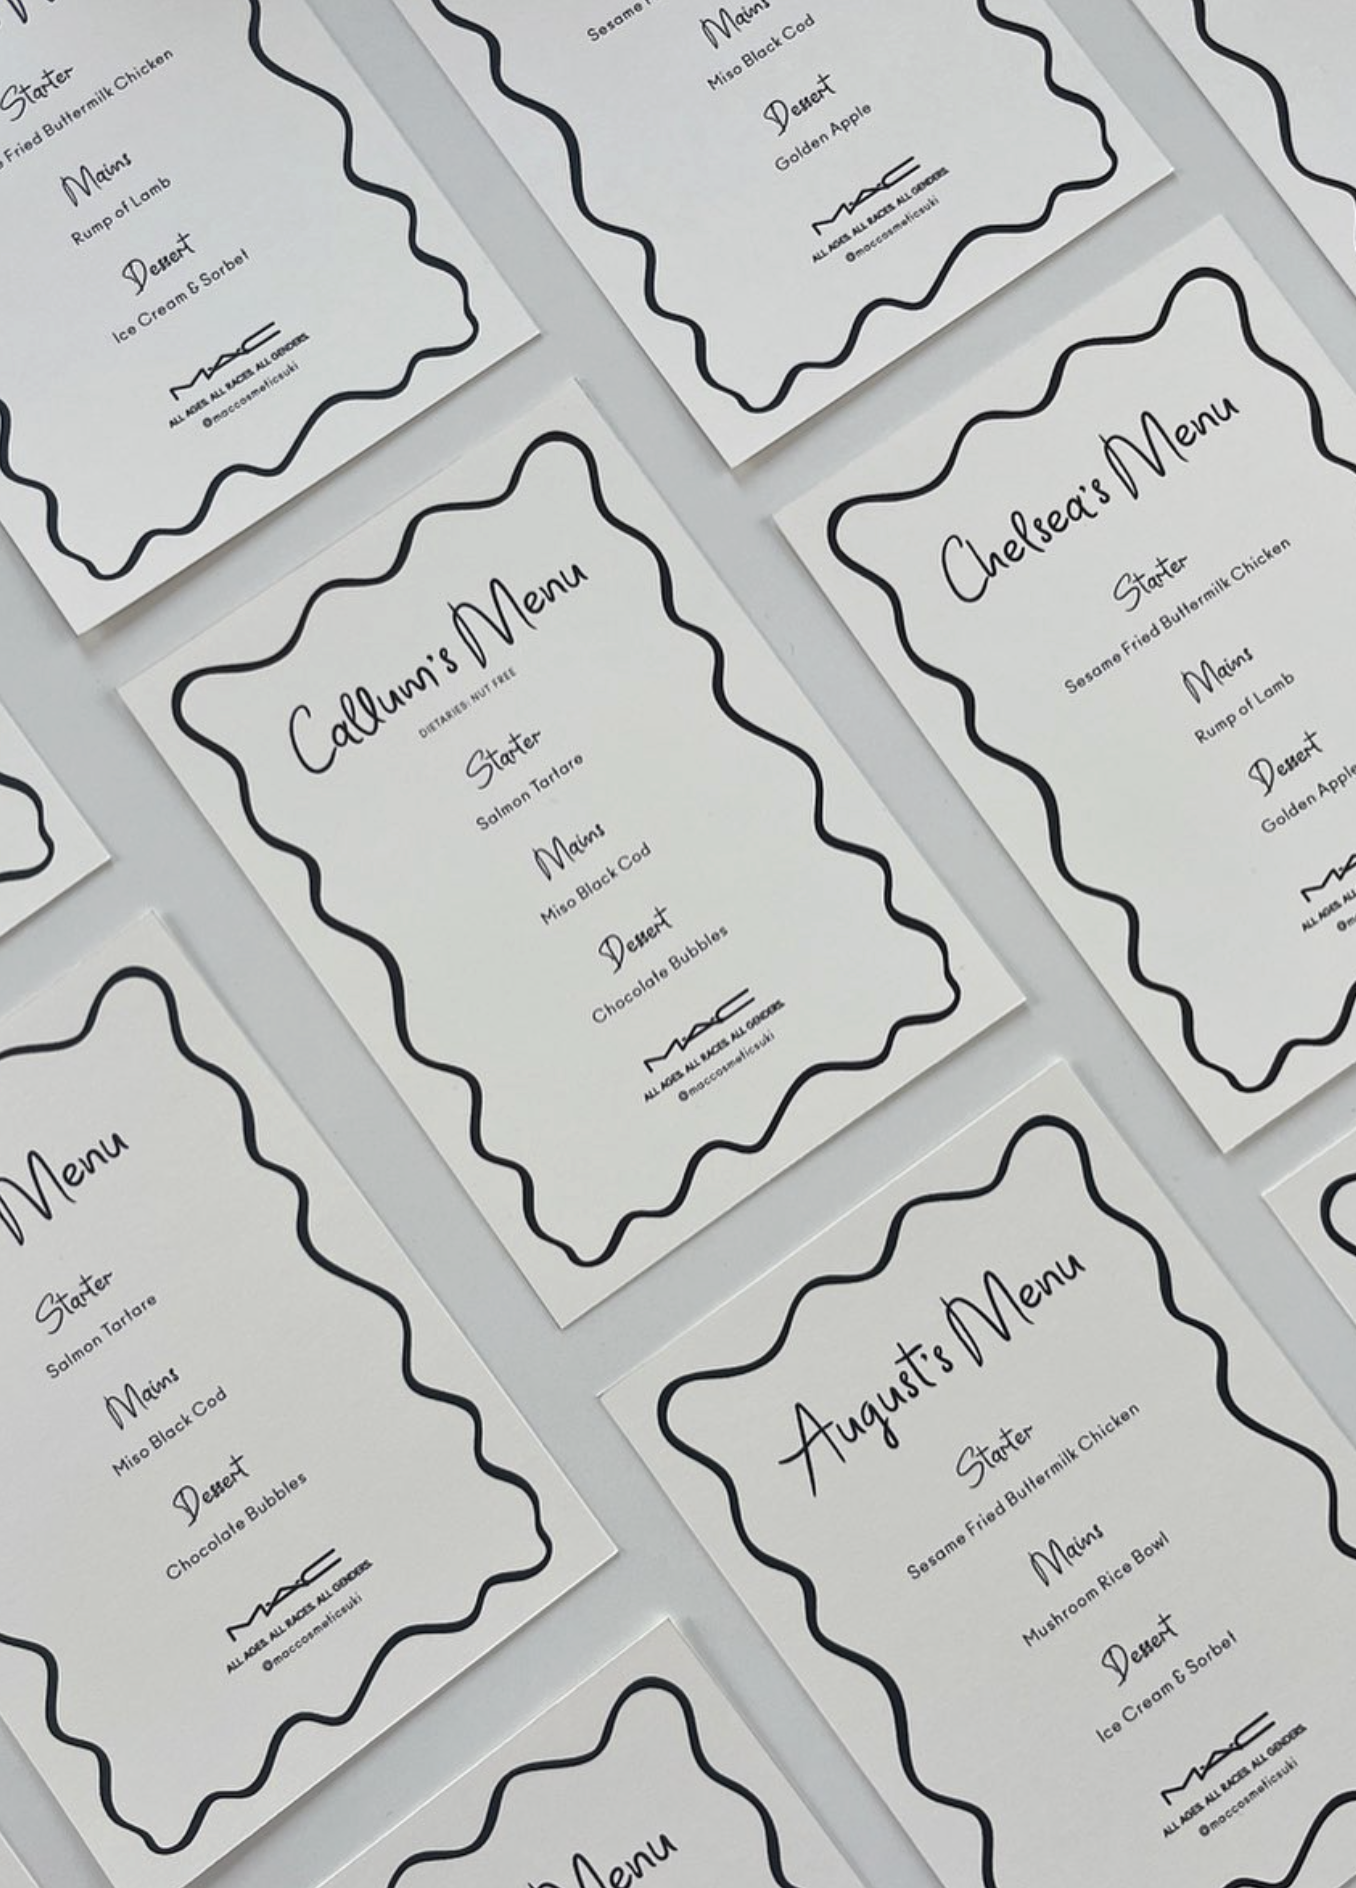 Starter
Fried Buttermilk Chicken
Mains
Rump of Lamb
Dessert
Ice Cream & Sorbet
MAC
ALL AGES. ALL RACES. ALL GENDERS.
@maccosmeticsuki
Sesame
Mains
Miso Black Cod
Dessert
Golden Apple
MAC
ALL AGES. ALL RACES. ALL GENDERS.
@maccosmeticsuki
Callum's Menu
DIETARIES: NUT FREE
Starter
Salmon Tartare
Mains
Miso Black Cod
Dessert
Chocolate Bubbles
MAC
ALL AGES. ALL RACES. ALL GENDERS.
@maccosmeticsuki
Chelsea's Menu
Starter
Sesame Fried Buttermilk Chicken
Mains
Rump of Lamb
Dessert
Golden Apple
ALL AGES. ALL
Menu
Starter
Salmon Tartare
Mains
Miso Black Cod
Dessert
Chocolate Bubbles
MAC
ALL AGES. ALL RACES. ALL GENDERS.
@maccosmeticsuki
August's Menu
Starter
Sesame Fried Buttermilk Chicken
Mains
Mushroom Rice Bowl
Dessert
Ice Cream & Sorbet
MAC
ALL AGES. ALL RACES. ALL GENDERS.
@maccosmeticsuki
Menu